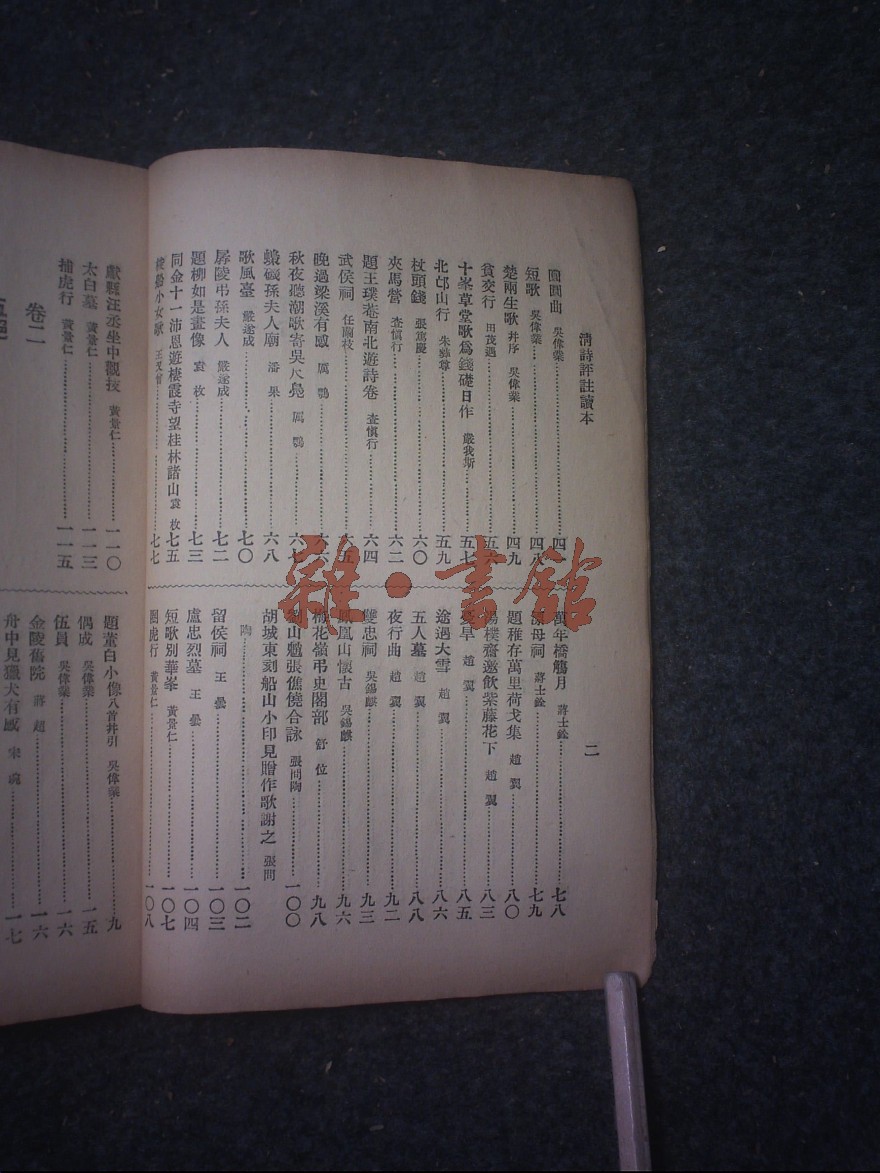 清詩評註讀本
二
圓圓曲 吳偉業 四
短歌 吳偉業 四八
楚兩生歌 并序 吳偉業 四九
貧交行 田茂遇 五六
十峯草堂歌爲錢礎日作 嚴我斯 五七
北邙山行 朱彝尊 五九
杖頭錢 張篤慶 六〇
夾馬營 查慎行 六二
題王璞菴南北遊詩卷 查慎行 六四
武侯祠 任蘭枝 六五
晚過梁溪有感 厲鶚 六六
秋夜聽潮歌寄吳尺鳧 厲鶚 六七
蟂磯孫夫人廟 潘果 六八
歌風臺 嚴遂成 七〇
孱陵弔孫夫人 嚴遂成 七二
題柳如是畫像 袁枚 七三
同金十一沛恩遊棲霞寺望桂林諸山 袁枚 七五
小女歌 王又曾 七七
萬年橋觴月 蔣士銓 七八
漂母祠 蔣士銓 七九
題稚存萬里荷戈集 趙翼 八〇
楊樸齋邀飲紫藤花下 趙翼 八三
憂旱 趙翼 八五
途遇大雪 趙翼 八六
五人墓 趙翼 八八
夜行曲 趙翼 九二
雙忠祠 吳錫麒 九三
鳳凰山懷古 吳錫麒 九六
梅花嶺弔史閣部 舒位 九八
劉山魈張僬僥合詠 張問陶 一〇〇
胡城東刻船山小印見贈作歌謝之 張問
陶 一〇二
留侯祠 王曇 一〇三
盧忠烈墓 王曇 一〇四
短歌別華峯 黃景仁 一〇七
圈虎行 黃景仁 一〇八
獻縣汪丞坐中觀技 黃景仁 一一〇
太白墓 黃景仁 一一三
捕虎行 黃景仁 一一五
卷二
五絕
題董白小像八首并引 吳偉業 九
偶成 吳偉業 一五
伍員 吳偉業 一六
金陵舊院 蔣超 一六
舟中見獵犬有感 宋琬 一七
雜·書館